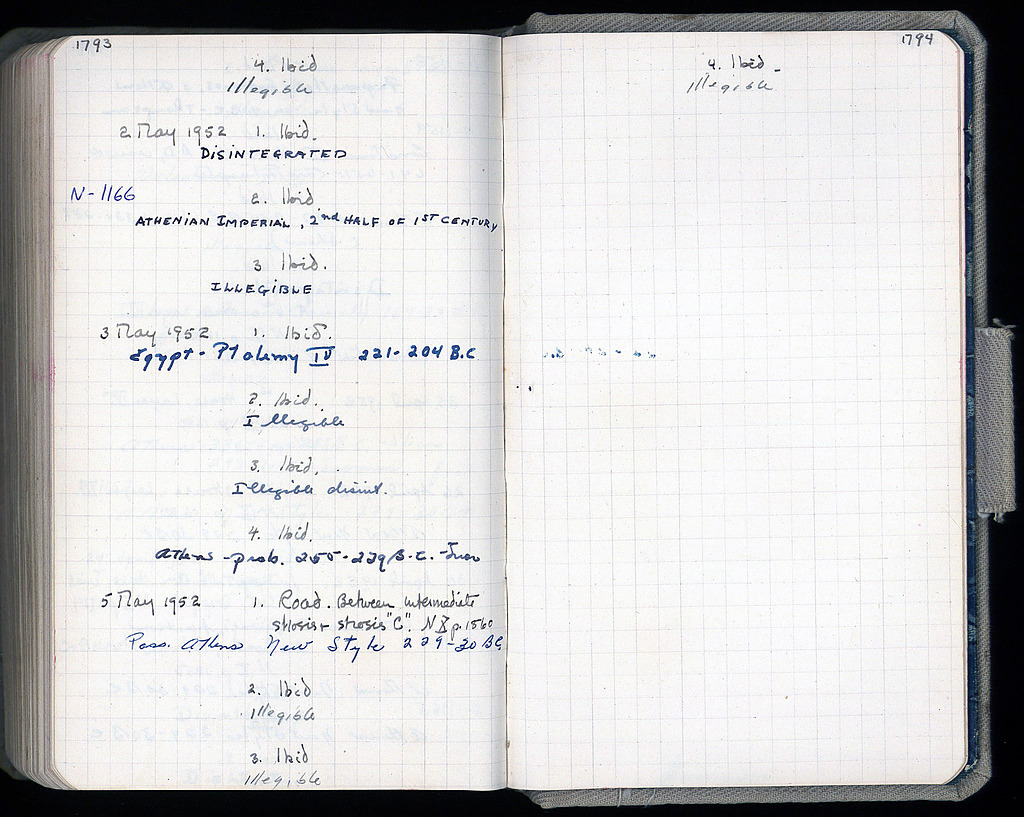 1793
4. Ibid
Illegible
2 May 1952 1. Ibid.
DISINTEGRATED
N-1166 2. Ibid
ATHENIAN IMPERIAL, 2nd HALF OF 1ST CENTURY
3 Ibid.
ILLEGIBLE
3 May 1952 1. Ibid.
Egypt - Ptolemy IV 221-204 B.C
2. Ibid.
Illegible
3. Ibid.
Illegible disint.
4. Ibid.
Athens - prob. 255-229 B.C.
5 May 1952 1. Road. Between intermediate
strosis + strosis "C". NX p. 1560
Poss. Athens New Style 229-30 BC
2. Ibid
Illegible
3. Ibid
Illegible
1794
4. Ibid.
Illegible